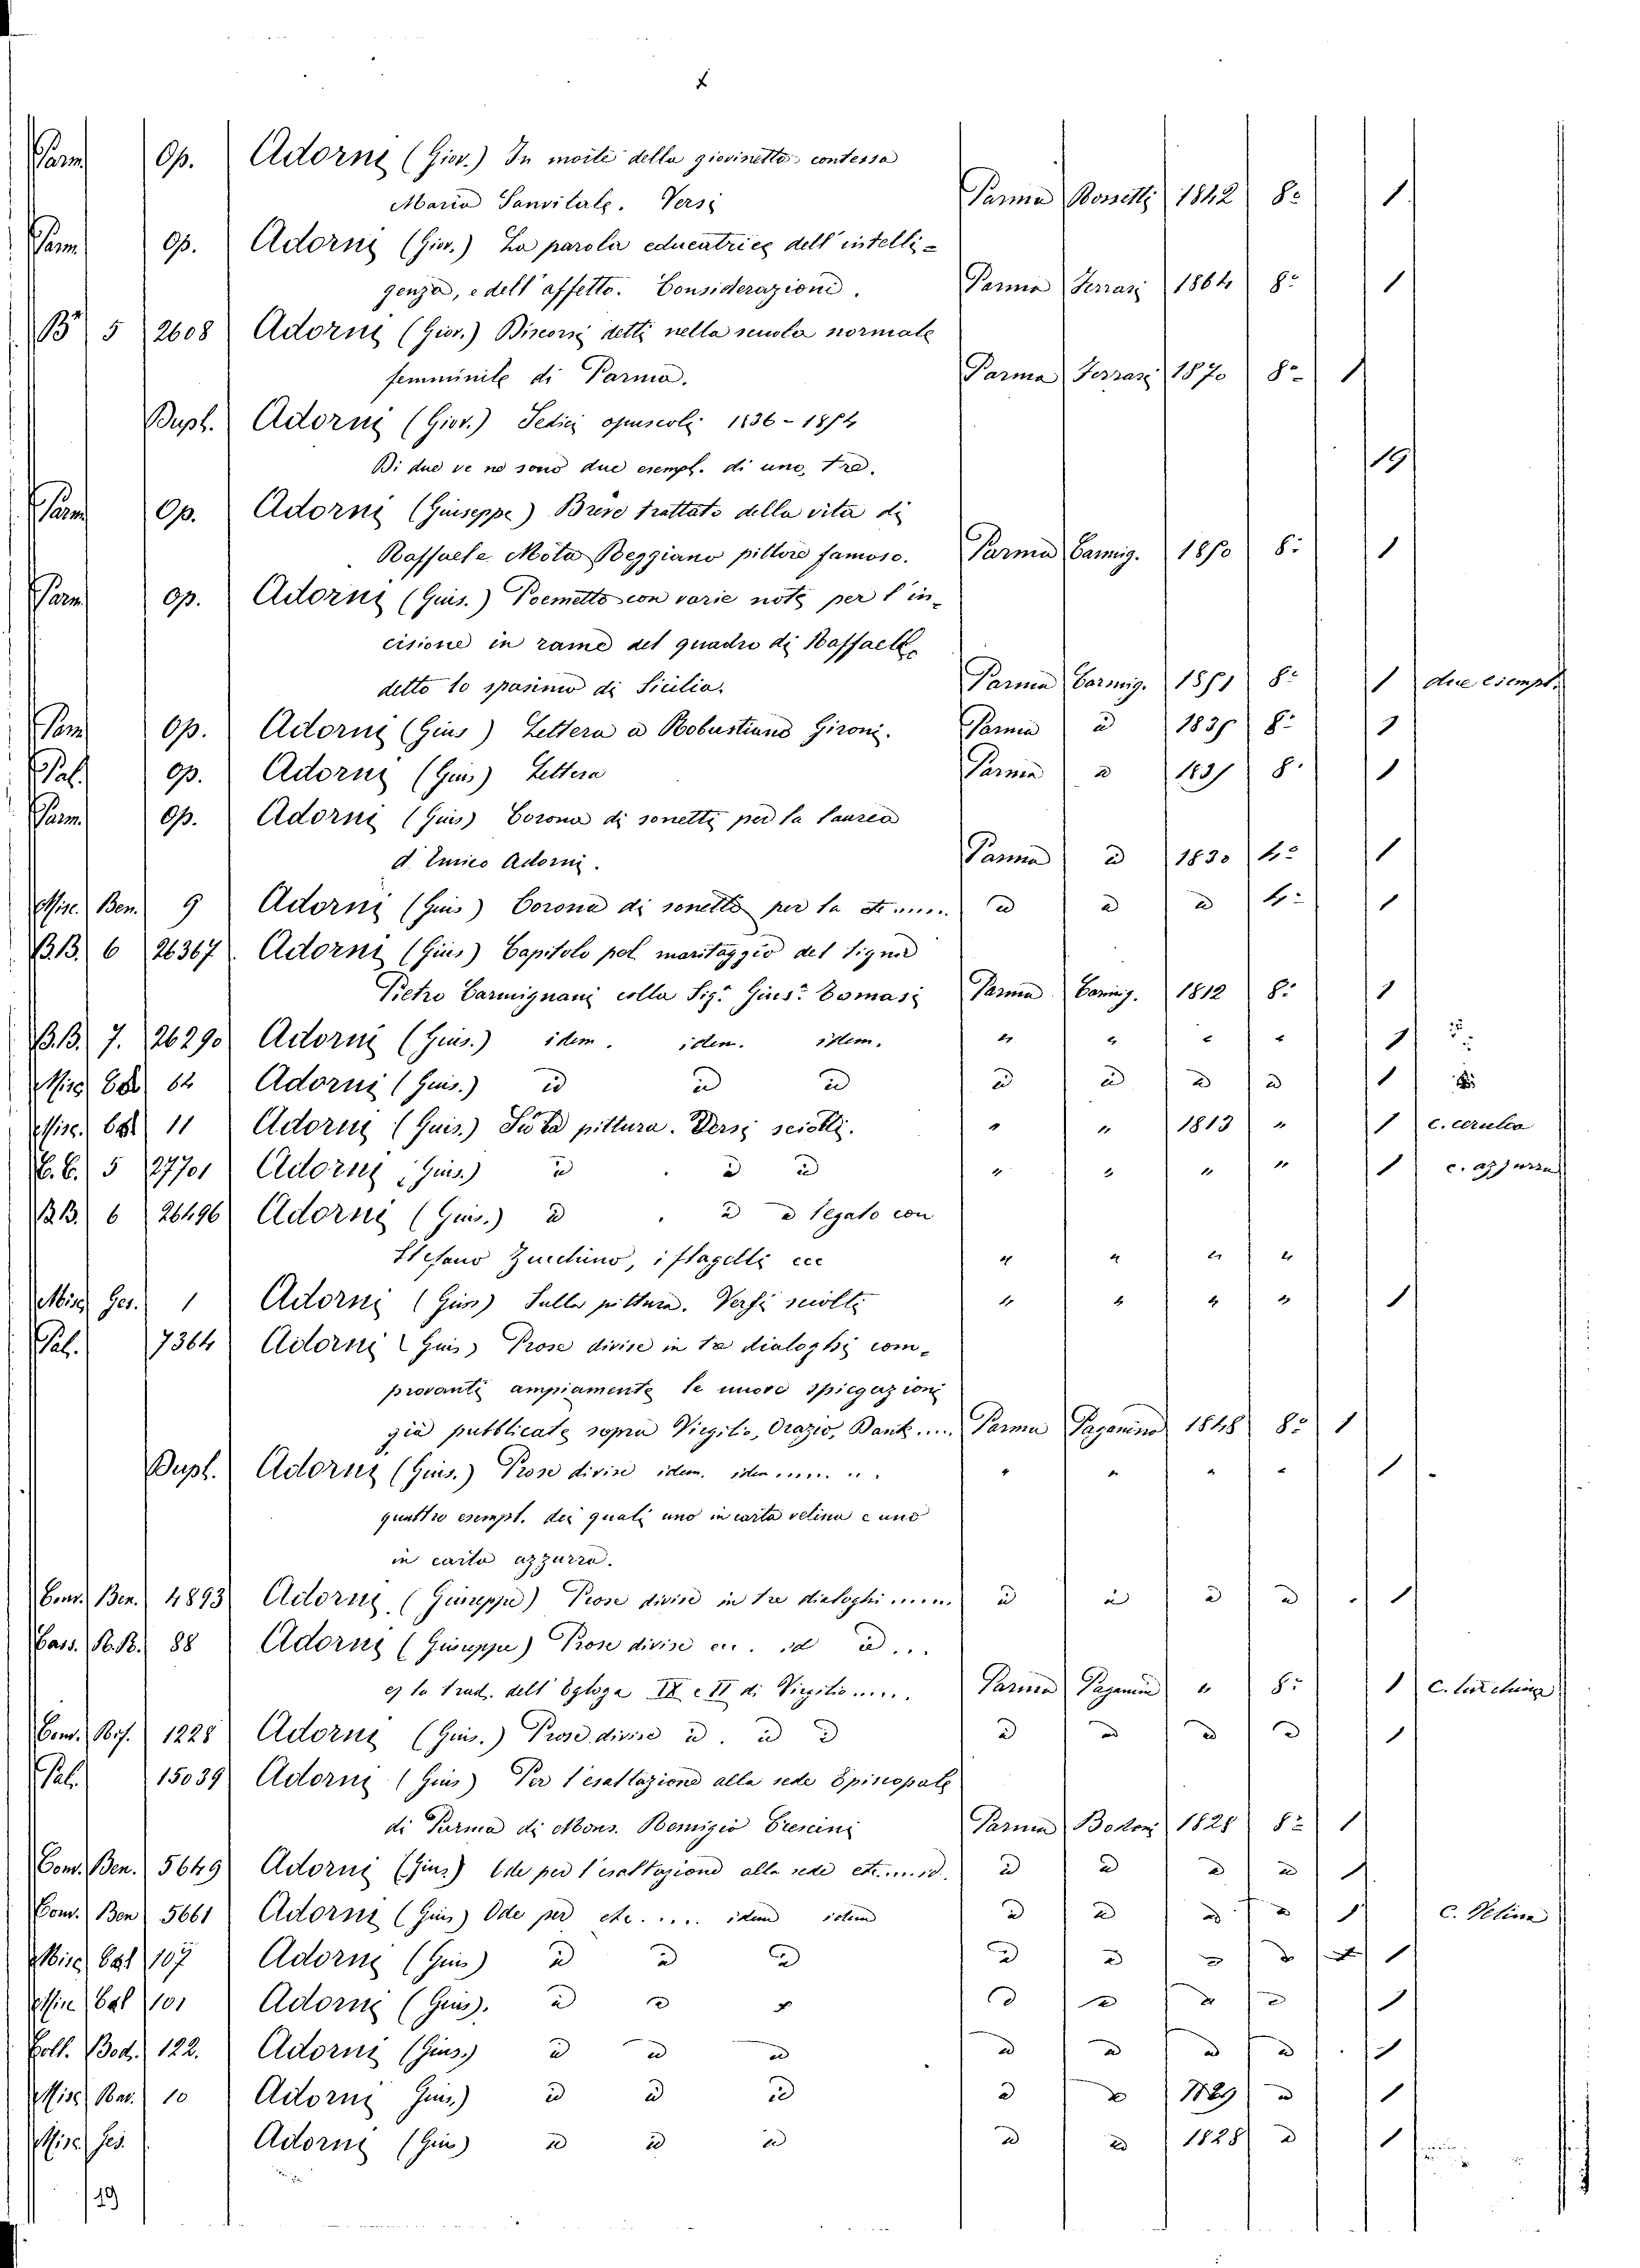 Parm. Op. Adorni (Giov.) In morte della giovinetta contessa
Maria Sanvitale. Versi Parma Rossetti 1842 8º 1
Parm. Op. Adorni (Giov.) La parola educatrice dell'intelli-
genza, e dell'affetto. Considerazioni. Parma Ferrari 1864 8º 1
B* 5 2608 Adorni (Giov.) Discorsi detti nella scuola normale
femminile di Parma. Parma Ferrari 1870 8º 1
Dupl. Adorni (Giov.) Sedici opuscoli 1836 - 1874
Di due ve ne sono due esempl. di uno, tre. 19
Parm Op. Adorni (Giuseppe) Breve trattato della vita di
Raffaele Mota Reggiano pittore famoso. Parma Carmig. 1850 8º 1
Parm Op. Adorni (Guis.) Poemetto con varie note per l'in-
cisione in rame del quadro di Raffaele
detto lo spasimo di Sicilia. Parma Carmig. 1851 8º 1 due esempl.
Parm Op. Adorni (Gius) Lettera a Robustiano Gironi. Parma id 8º 1
Pal. Op. Adorni (Gius) Lettera Parma id 8º 1
Parm. Op. Adorni (Guis) Corona di sonetti per la laurea
d'Enrico Adorni. Parma id 1830 4º 1
Misc. Ben. 9 Adorni (Guis) Corona di sonetti per la id id id 4º 1
B.B. 6 26367 Adorni (Gius) Capitolo pel maritaggio del Signor
Pietro Carmignani colla Sig.ª Gius.ª Tomasi Parma Carmig. 1812 8º 1
B.B. 7. 26290 Adorni (Guis.) idem. idem. idem. " " " " 1
Misc 64 Adorni (Guis.) id id id id id id id 1
Misc. 11 Adorni (Guis.) Su la pittura. Versi sciolti. " " 1813 " 1 c. cerulea
C.C. 5 27701 Adorni (Gius.) id id id " " " " 1 c. azzurra
B.B. 6 26496 Adorni (Guis.) id id id legato con
Stefano Zucchino, i flagelli ecc " " " "
Misc Ges. 1 Adorni (Gius) Sulla pittura. Versi sciolti " " " " 1
Pal. 7364 Adorni (Guis) Prose divise in tre dialoghi com-
provanti ampiamente le nuove spiegazioni
già pubblicate sopra Virgilio, Orazio, Dante.... Parma Paganino 1848 8º 1
Dupl. Adorni (Guis.) Prose divise idem. idem ...... " " " " 1
quattro esempl. dei quali uno in carta velina e uno
in carta azzurra.
Conv. Ben. 4893 Adorni (Giuseppe) Prose divise in tre dialoghi ..... id id id id 1
Cass. R.R. 88 Adorni (Giuseppe) Prose divise ecc. id id...
e la trad. dell'Egloga IX e II di Virgilio..... Parma Paganini " 8º 1
Conv. 1228 Adorni (Guis.) Prose divise id. id id id id id id 1
Pal. 15039 Adorni (Guis) Per l'esaltazione alla sede Episcopale
di Parma di Mons. Remigio Crescini Parma Bodoni 1828 8º 1
Conv. Ben. 5649 Adorni (Gius) Ode per l'esaltazione alla sede etc.... id. id id id id 1
Conv. Ben 5661 Adorni (Guis) Ode per etc. .... idem idem id id id id 1 C. Velina
Misc 107 Adorni (Guis) id id id id id id id 1
Misc 101 Adorni (Guis). id id id id id id 1
Coll. Bod. 122. Adorni (Gius.) id id id id id id id 1
Misc 10 Adorni Guis.) id id id id id 1829 id 1
Misc Ges. Adorni (Guis) id id id id id 1828 id 1
19